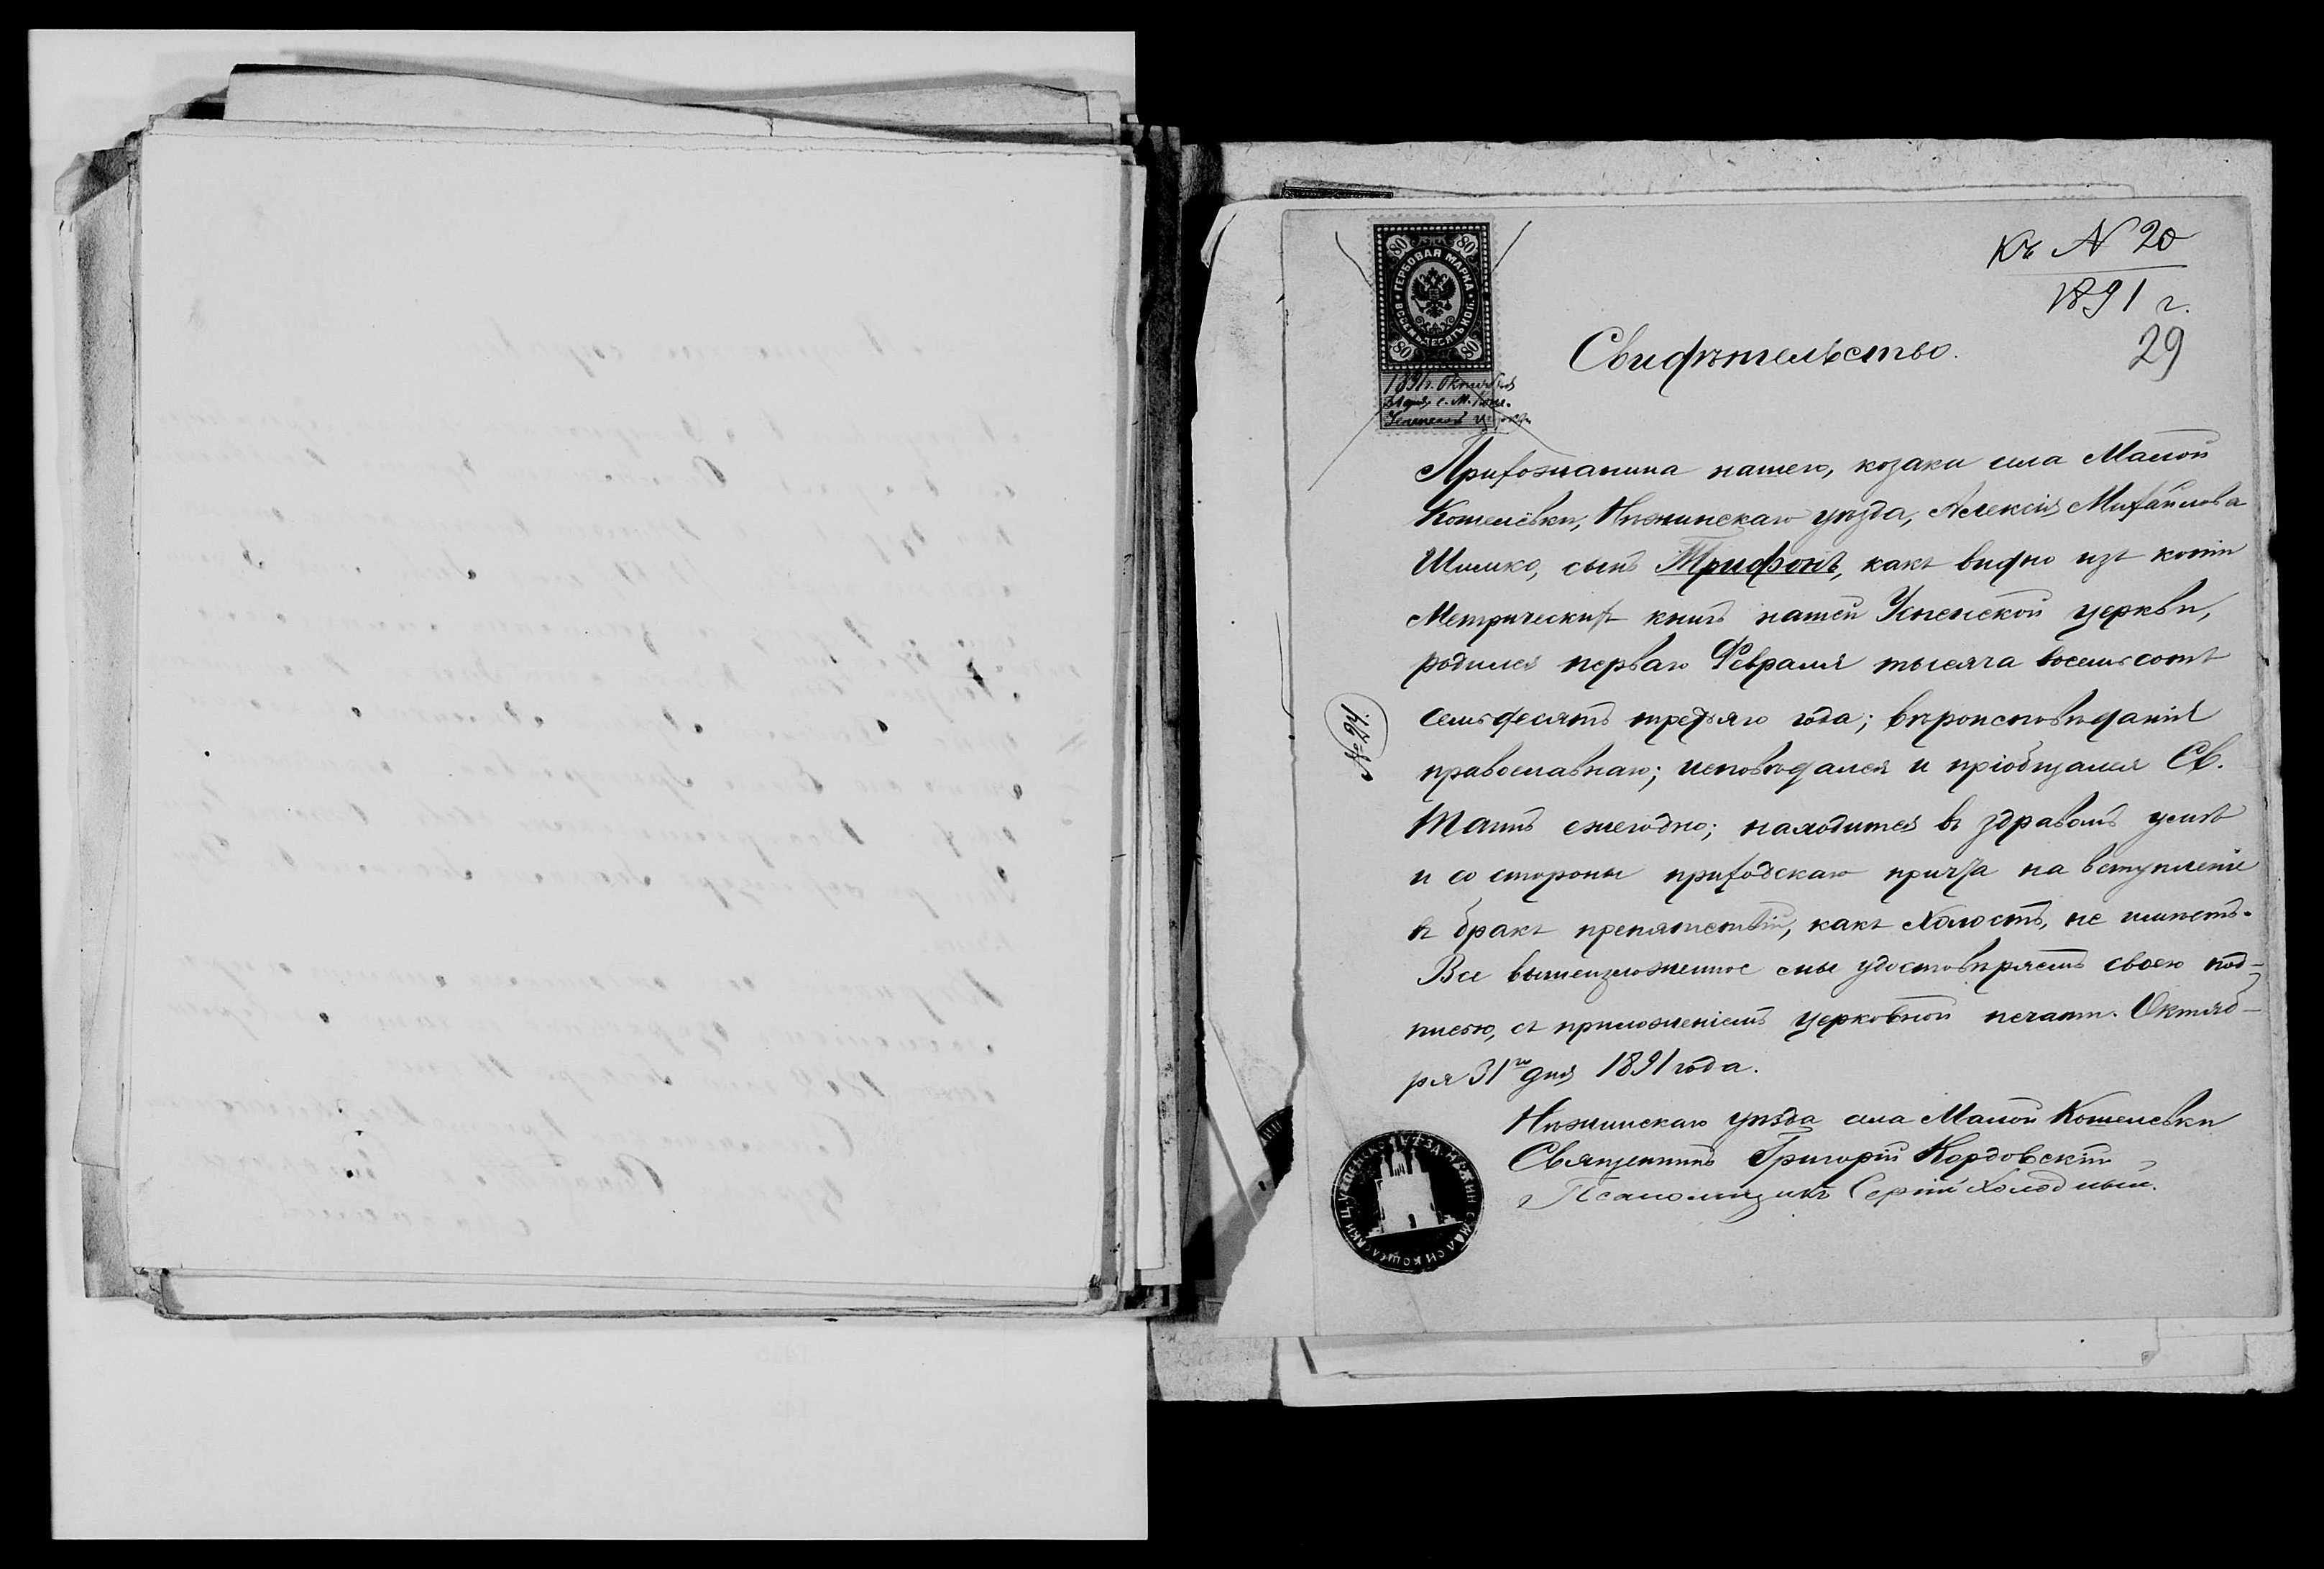 Къ N 20
1891 г.
29
80 80
ГЕРБОВАЯ МАРКА
ВОСЕМЬДЕСЯТЪ КОП.
80 80
1891 г. Октября
31 дня, с. М. Кош.
Успенской ц.
Свидѣтельство.
Прихожанина нашего, козака села Малой
Кошелёвки, Нѣжинскаго уѣзда, Алексія Михайлова
Шишко, сынъ Трифонъ, какъ видно изъ копіи
Метрическихъ книгъ нашей Успенской церкви,
родился перваго Февраля тысяча восемьсотъ
семьдесятъ третьяго года; вѣроисповѣданія
православнаго; исповѣдался и пріобщался Св.
Таинъ ежегодно; находится въ здравомъ умѣ
и со стороны приходскаго причта на вступленіе
въ бракъ препятствій, какъ холостъ, не имѣетъ.
Все вышеизложенное мы удостовѣряемъ своею под-
писью, съ приложеніемъ церковной печати. Октяб-
ря 31го дня 1891 года.
№ 264
Нѣжинскаго уѣзда села Малой Кошелевки
Священникъ Григорій Кордовскій
Псаломщикъ Сергій Холодный.